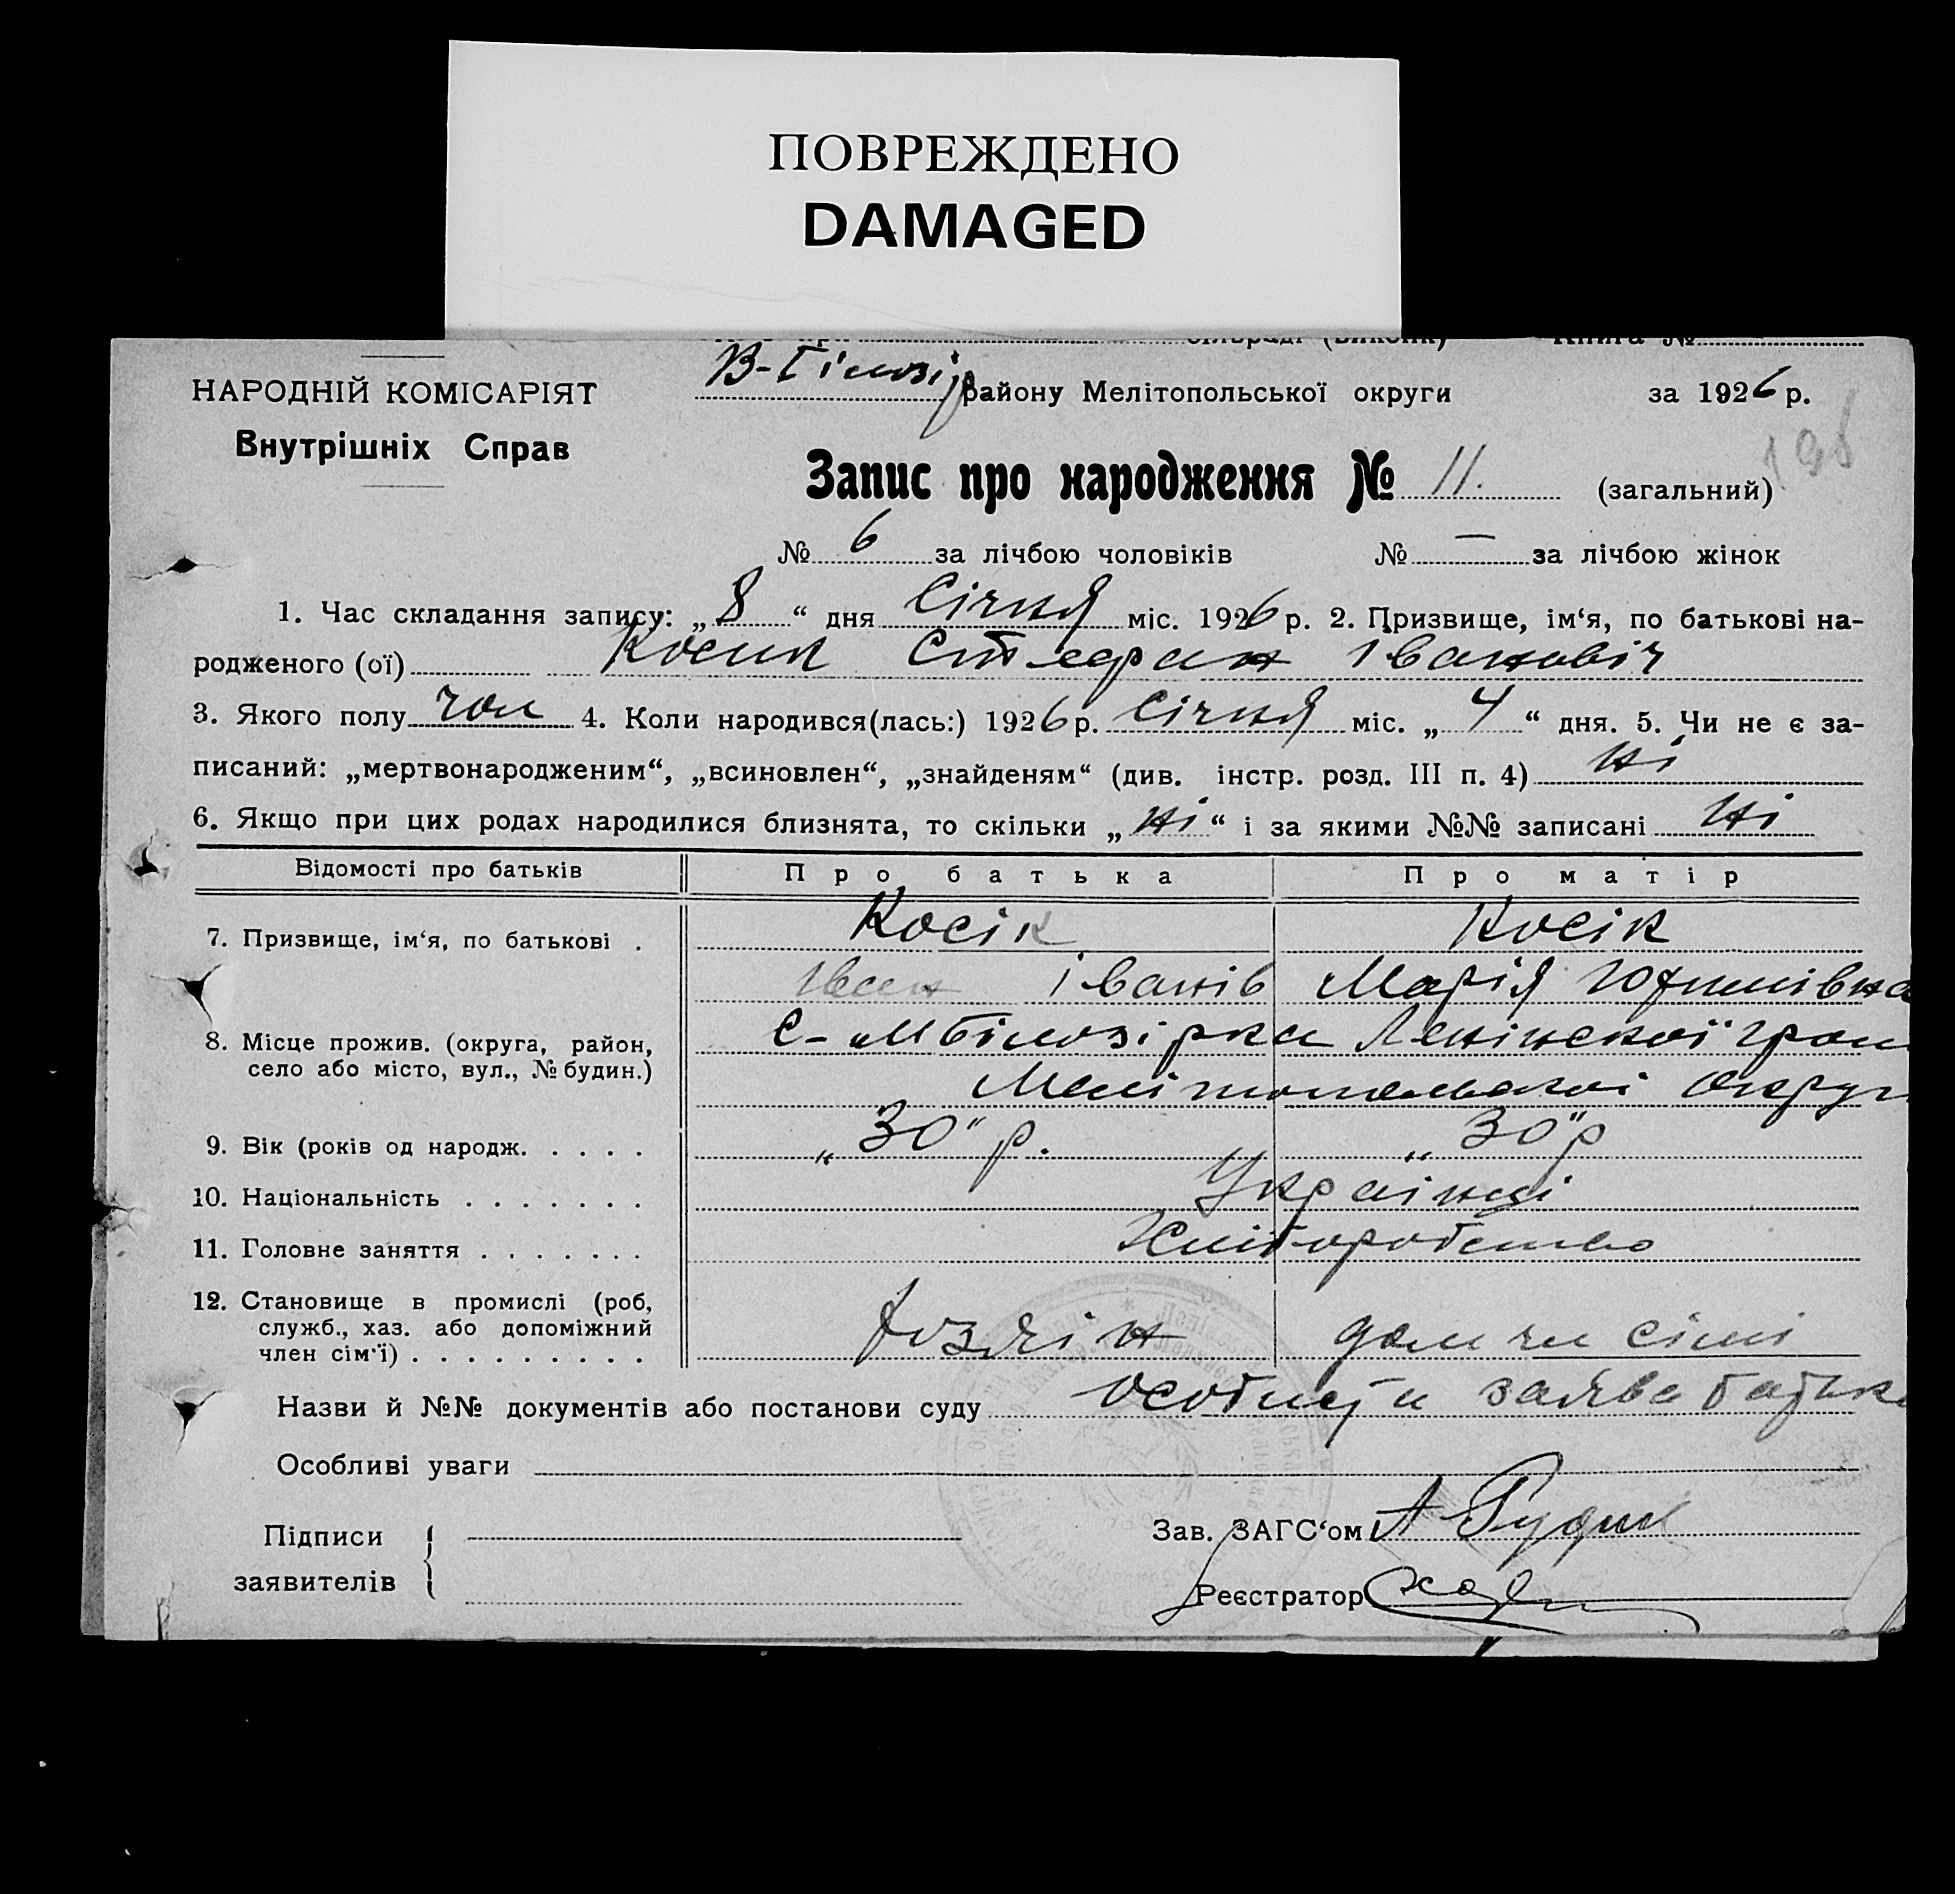 ПОВРЕЖДЕНО
DAMAGED
сільраді (виконк) Книга №
НАРОДНІЙ КОМІСАРІЯТ
В-Білозір району Мелітопольської округи за 1926 р.
Внутрішніх Справ
Запис про народження № 11. (загальний)
№ 6 за лічбою чоловіків № — за лічбою жінок
1. Час складання запису: „ 8 “ дня Січня міс. 1926 р. 2. Призвище, ім‘я, по батькові на-
родженого (ої) Косик Стефан Івановіч
3. Якого полу чол 4. Коли народився(лась:) 1926 р. Січня міс. „ 4 “ дня. 5. Чи не є за-
писаний: „мертвонародженим“, „всиновлен“, „знайденям“ (див. інстр. розд. III п. 4) Ні
6. Якщо при цих родах народилися близнята, то скільки „ Ні “ і за якими №№ записані Ні
Відомості про батьків Про батька Про матір
7. Призвище, ім‘я, по батькові . Косік Косік
Іван Іванів Марія Юхимівна
8. Місце прожив. (округа, район, село або місто, вул., № будин.) С-М Білозірка Ленінської гром
Мелітопольскоі округи
9. Вік (років од народж. . . . . „30“ р. „30“ р
10. Національність . . . . . . . Українці
11. Головне заняття . . . . . . . Хліборобство
12. Становище в промислі (роб,
служб., хаз. або допоміжний
член сім‘ї) . . . . . . . . . Хозяін дом чл сімі
Назви й №№ документів або постанови суду особиста заява батька
Особливі уваги
Підписи
заявителів
Зав. ЗАГС‘ом
Реєстратор